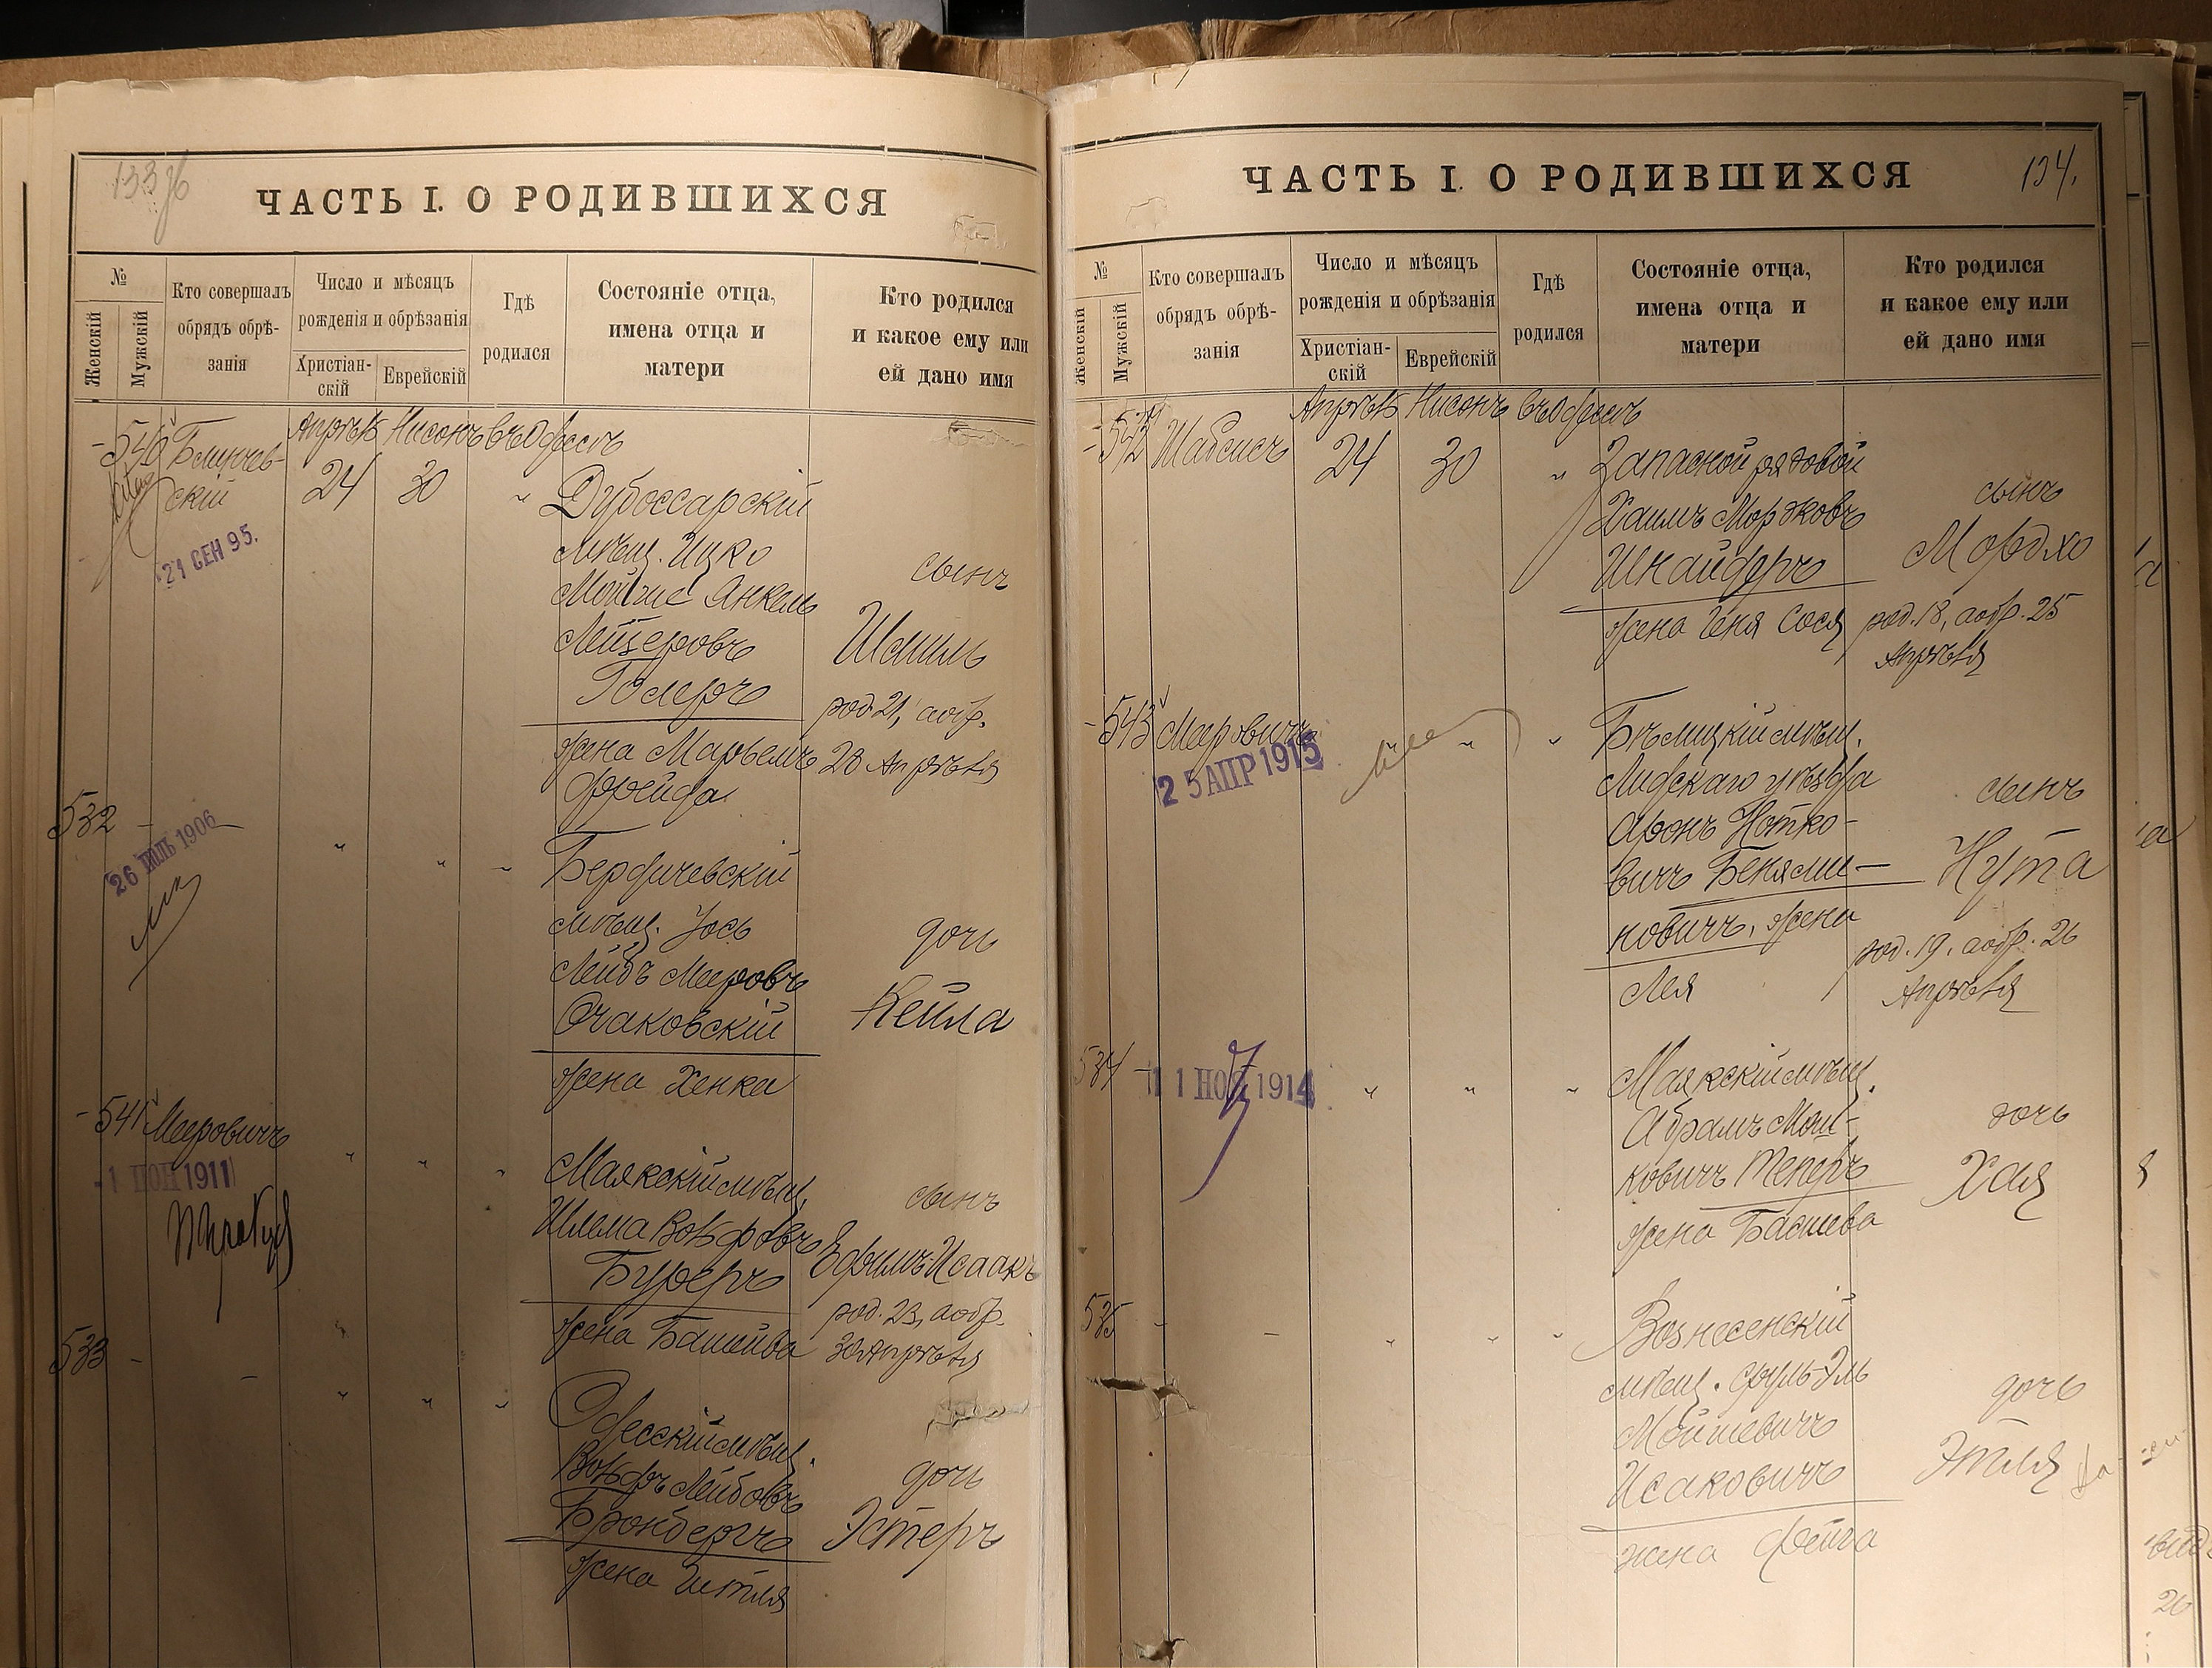 133 об
ЧАСТЬ I. О РОДИВШИХСЯ
№
Женскій
Мужскій
Кто совершалъ
обрядъ обрѣ-
занія
Число и мѣсяцъ
рожденія и обрѣзанія
Христіан-
скій
Еврейскій
Гдѣ
родился
Состояніе отца,
имена отца и
матери
Кто родился
и какое ему или
ей дано имя
Апрѣль Нисонъ въ Одессѣ
540 Блинчев-
скій
24 30 "
21 СЕН 95.
Дубоссарскій
мѣщ. Ицко
Мойше Янкель
Лейзеровъ
Голеръ
жена Марьемъ
Фрейда
сынъ
Шмиль
род. 21, а обр.
28 Апрѣля
532 -
26 ІЮЛЬ 1906
" " "
Бердичевскій
мѣщ. Іось
Лейбъ Мееровъ
Очаковскій
жена Хенка
дочь
Кейла
541 Мееровичъ
1911
" " "
Маякскій мѣщ.
Шлема Вольфовъ
Буреръ
жена Башейва
сынъ
Ефимъ-Исаакъ
род. 23, а обр.
30 Апрѣля
533 - -
" " "
Одесскій мѣщ.
Вольфъ Лейбовъ
Бронбергъ
жена Гитля
дочь
Эстеръ
134.
ЧАСТЬ I. О РОДИВШИХСЯ
№
Женскій
Мужскій
Кто совершалъ
обрядъ обрѣ-
занія
Число и мѣсяцъ
рожденія и обрѣзанія
Христіан-
скій
Еврейскій
Гдѣ
родился
Состояніе отца,
имена отца и
матери
Кто родился
и какое ему или
ей дано имя
Апрѣль Нисонъ въ Одессѣ
542 Шабсисъ
24 30 "
Запасной рядовой
Хаимъ Мордковъ
Шнайдеръ
жена Геня Сося
сынъ
Мордхо
род. 18, а обр. 25
Апрѣля
543 Мееровичъ
25 АПР 1915
" "
Бѣлицкій мѣщ.
Лидскаго уѣзда
Аронъ Нотко-
вичъ Беньями-
новичъ, жена
Лея
сынъ
Нута
род. 19, а обр. 26
Апрѣля
534 -
11 НОЯ 1914
" " "
Маякскій мѣщ.
Абрамъ Мош-
ковичъ Теперъ
жена Басшева
дочь
Хая
535 - -
" " "
Вознесенскій
мѣщ. Сруль-Эль
Мойшевичъ
Исаковичъ
жена Фейга
дочь
Этля